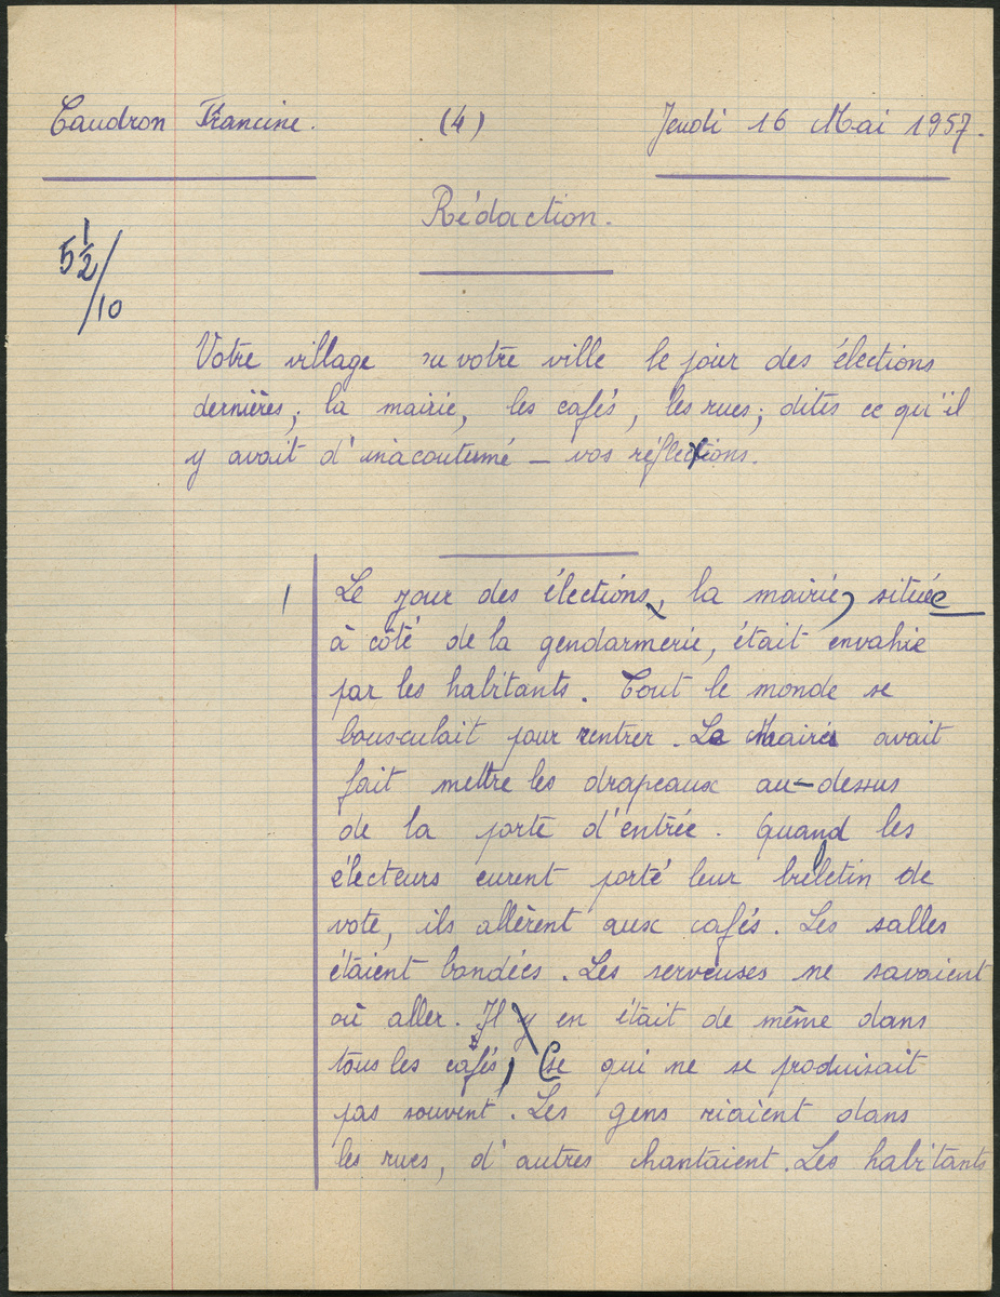 Caudron Francine. (4) Jeudi 16 Mai 1957.
Rédaction.
5 1/2 /10
Votre village ou votre ville le jour des élections
dernières; la mairie, les cafés, les rues; dites ce qu'il
y avait d'inacoutumé - vos réflexions.
1
Le jour des élections, la mairie, située
à côté de la gendarmerie, était envahie
par les habitants. Tout le monde se
bousculait pour rentrer. Le Maire avait
fait mettre les drapeaux au-dessus
de la porte d'entrée. Quand les
électeurs eurent porté leur bulletin de
vote, ils allèrent aux cafés. Les salles
étaient bondées. Les serveuses ne savaient
où aller. Il y en était de même dans
tous les cafés, ce qui ne se produisait
pas souvent. Les gens riaient dans
les rues, d'autres chantaient. Les habitants